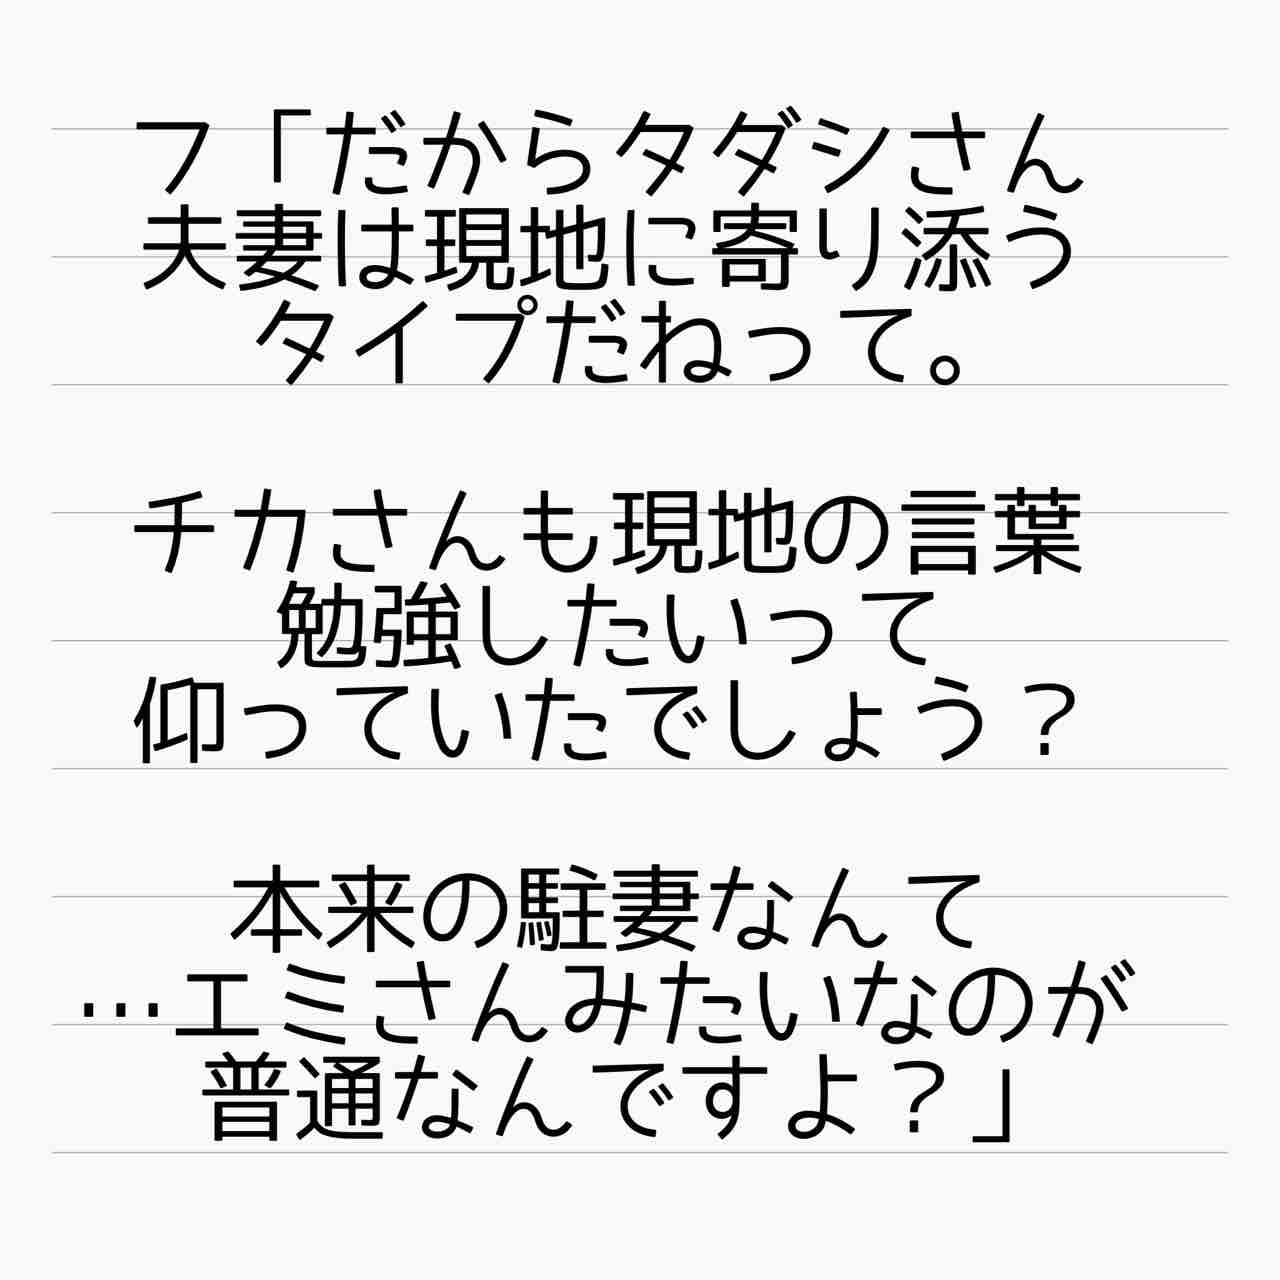 フ「だからタダシさん
夫妻は現地に寄り添う
タイプだねって。
チカさんも現地の言葉
勉強したいって
仰っていたでしょう？
本来の駐妻なんて
…エミさんみたいなのが
普通なんですよ？」